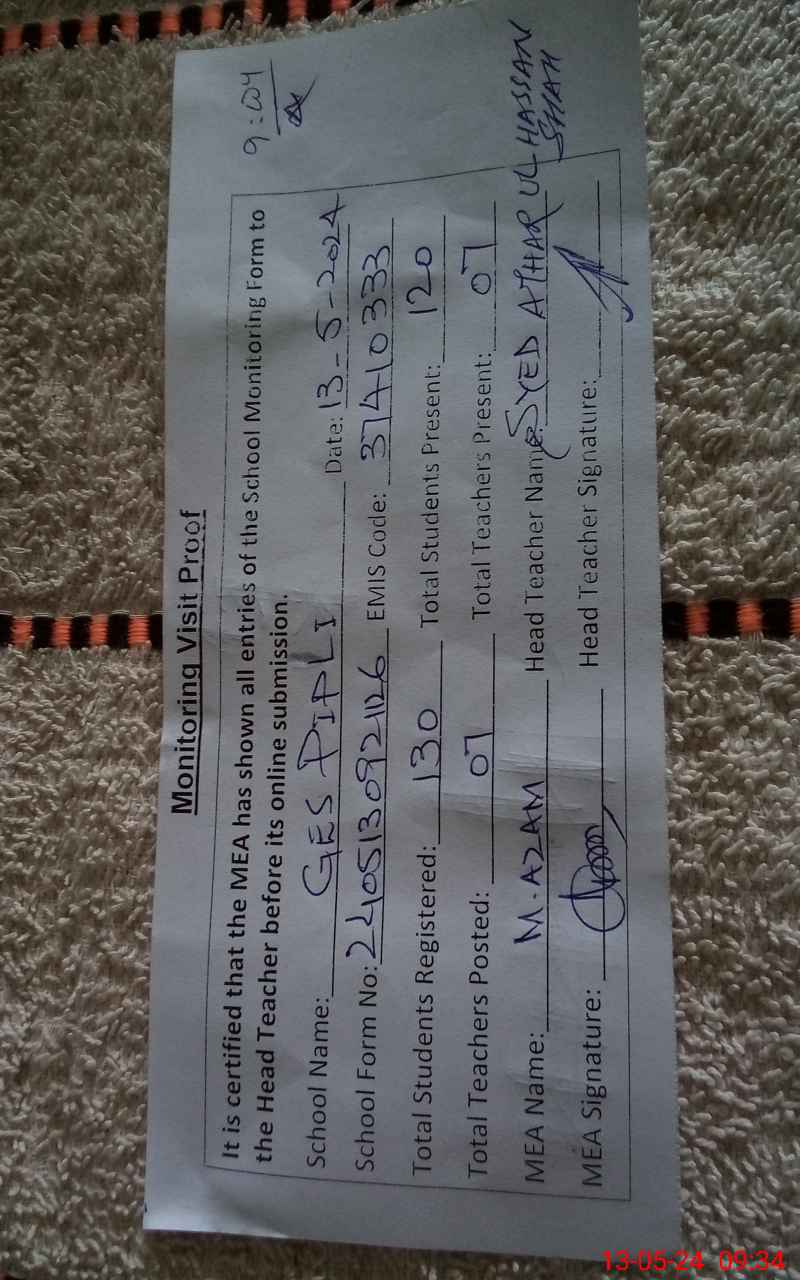 9:04
Monitoring Visit Proof
It is certified that the MEA has shown all entries of the School Monitoring Form to
the Head Teacher before its online submission.
School Name: GES PIPLI Date: 13-5-2024
School Form No: 2405130921126 EMIS Code: 37410333
Total Students Registered: 130 Total Students Present: 120
Total Teachers Posted: 07 Total Teachers Present: 07
MEA Name: M. AZAM Head Teacher Name: SYED ATHAR UL HASSAN
SHAH
MEA Signature: Head Teacher Signature:
13-05-24 09:34